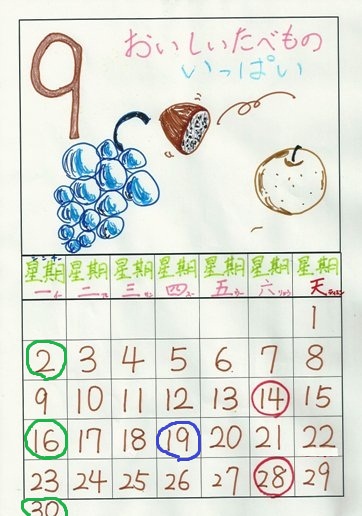 9
おいしいたべもの
いっぱい
星期 星期 星期 星期 星期 星期 星期
一 二 三 四 五 六 天
1
2 3 4 5 6 7 8
9 10 11 12 13 14 15
16 17 18 19 20 21 22
23 24 25 26 27 28 29
30